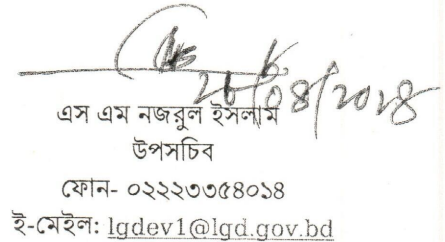 এস এম নজরুল ইসলাম
উপসচিব
ফোন- ০২২২৩৩৫৪০১৪
ই-মেইল: lgdev1@lgd.gov.bd